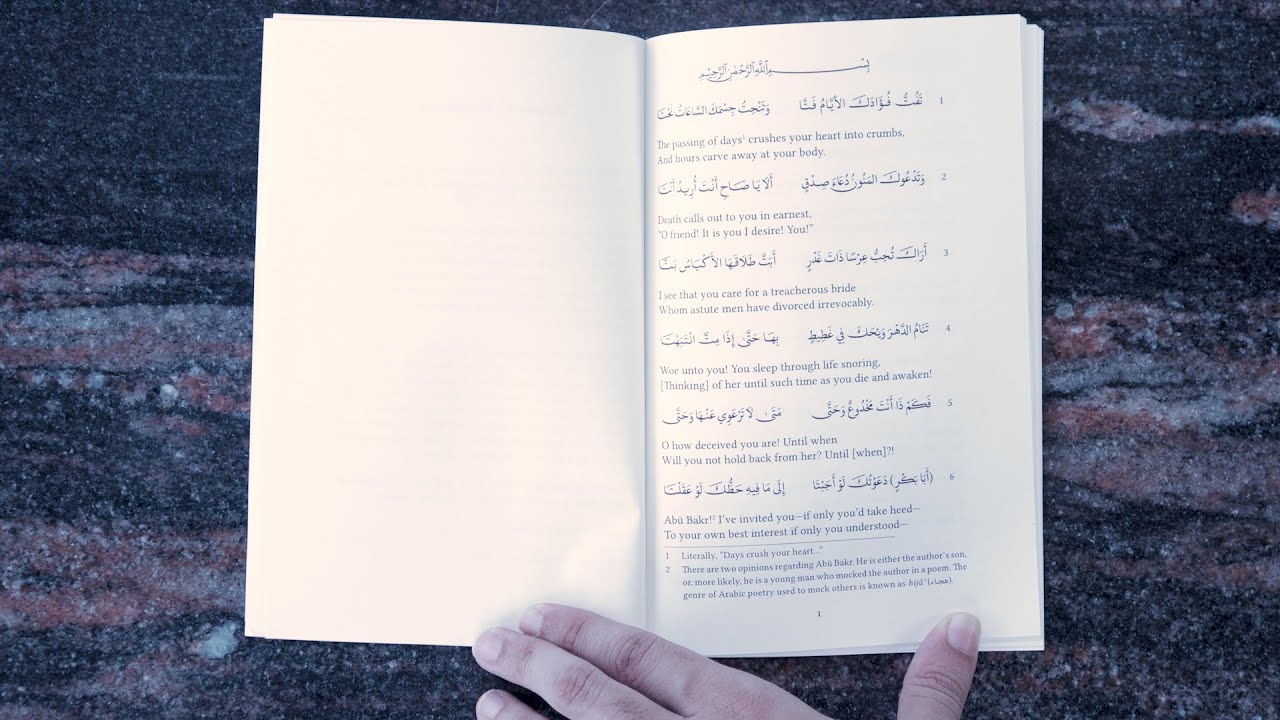 بِسْمِ اللَّهِ الرَّحْمٰنِ الرَّحِيْمِ
1 تَفُتُّ فُؤَادَكَ الأَيَّامُ فَتَّا وَتَنْحِتُ جِسْمَكَ السَّاعَاتُ نَحْتَا
The passing of days¹ crushes your heart into crumbs,
And hours carve away at your body.
2 وَتَدْعُوكَ المَنُونُ دُعَاءَ صِدْقٍ أَلَا يَا صَاحِ أَنْتَ أُرِيدُ أَنْتَا
Death calls out to you in earnest,
"O friend! It is you I desire! You!"
3 أَرَاكَ تُحِبُّ عِرْسًا ذَاتَ غَدْرٍ أَبَتَّ طَلَاقَهَا الأَكْيَاسُ بَتَّا
I see that you care for a treacherous bride
Whom astute men have divorced irrevocably.
4 تَنَامُ الدَّهْرَ وَيْحَكَ فِي غَطِيطٍ بِهَا حَتَّىٰ إِذَا مِتَّ انْتَبَهْتَا
Woe unto you! You sleep through life snoring,
[Thinking] of her until such time as you die and awaken!
5 فَكَمْ ذَا أَنْتَ مَخْدُوعٌ وَحَتَّى مَتَىٰ لَا تَرْعَوِي عَنْهَا وَحَتَّى
O how deceived you are! Until when
Will you not hold back from her? Until [when]?!
6 (أَبَا بَكْرٍ) دَعَوْتُكَ لَوْ أَجَبْتَا إِلَى مَا فِيهِ حَظُّكَ لَوْ عَقَلْتَا
Abū Bakr!² I've invited you—if only you'd take heed—
To your own best interest if only you understood—
1 Literally, "Days crush your heart..."
2 There are two opinions regarding Abū Bakr. He is either the author's son,
or, more likely, he is a young man who mocked the author in a poem. The
genre of Arabic poetry used to mock others is known as hijāʾ (هجاء).
1